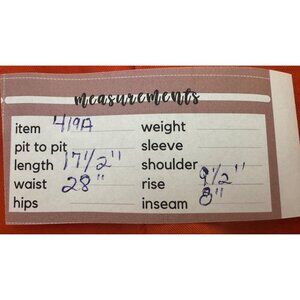 measurements
item 419A weight
pit to pit sleeve
length 17 1/2" shoulder
waist 28" rise 9 1/2"
hips inseam 8"